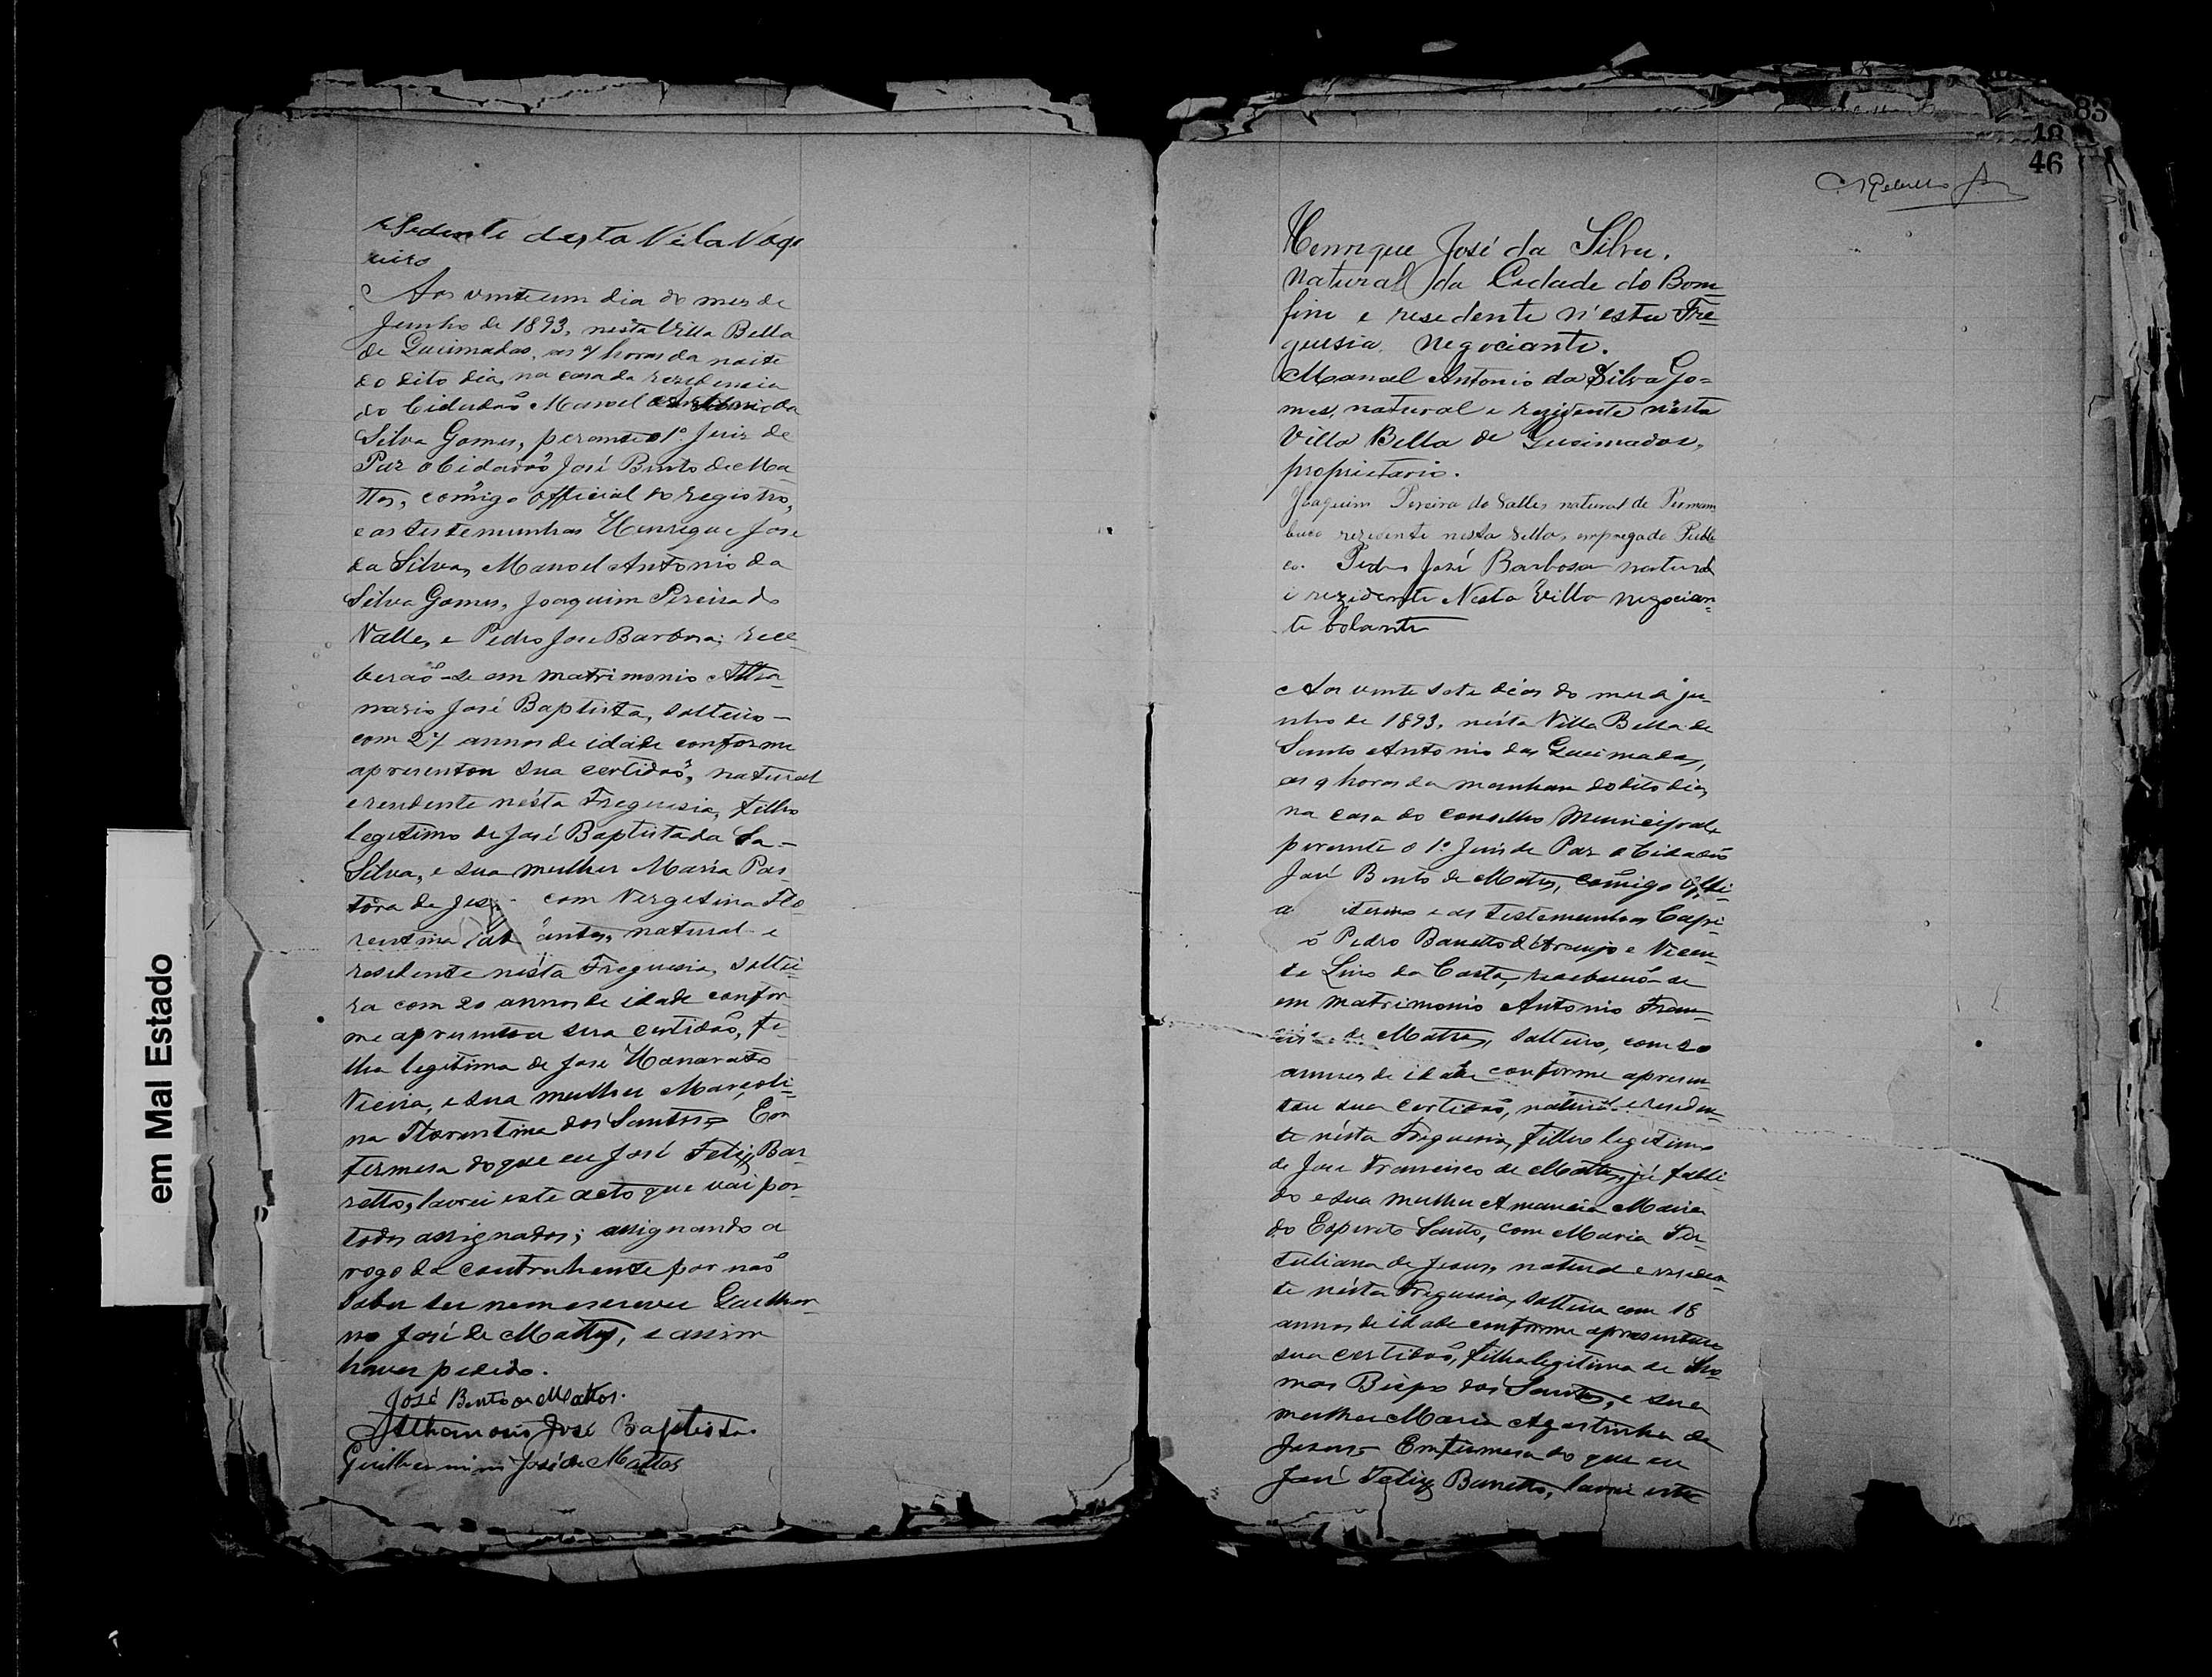 resedente desta Vila Vaqe
eiro
Aos vinte um dia do mes de
Junho de 1893, nesta Villa Bella
de Queimadas, as 7 horas da noite
do dito dia, na casa da rezidencia
do Cidadaõ Manoel Antonio da
Silva Gomes, perante o 1º Juiz de
Paz o Cidadaõ José Bento de Ma-
ttos, comigo official do registro,
e as testemunhas Henrique Jose
da Silva, Manoel Antonio da
Silva Gomes, Joaquim Pereira do
Valle, e Pedro Jose Barbosa; rece-
beraõ-se em matrimonio Atha-
nasio José Baptista, solteiro –
com 27 annos de idade conforme
apresentou sua certidaõ, natural
e residente nésta Freguesia, filho
legetimo de José Baptista da
Silva, e sua mulher Maria Pas-
tôra de com Vergetina Flo-
rentina natural e
residente nésta Freguesia, soltei-
ra com 20 annos de idade confor-
me apresentou sua certidaõ, fi-
lha legitima de Jose Honorato
Vieira, e sua mulher Marcoli-
na Florentina dos Santos; Em
fermesa do que eu José Felix Bar-
retto, lavrei este acto que vai por
todos assignados; assignando a
rogo da contrahente por naõ
saber ler nem escrever Guilher-
mo José de Mattos, e assim
haver pedido.
José Bento de Mattos.
Athanasio José Baptista.
Guilhermino José de Mattos
83
48
46
Henrique José da Silva,
natural da Cidade do Bom
fim e resedente n'esta Fre-
guesia. Negociante.
Manoel Antonio da Silva Go=
mes, natural e rezidente nesta
Villa Bella de Queimadas,
proprietario.
Joaquim Pereira do Valle, natural de Pernam
buco rezidente nesta Villa, empregado Publi
co. Pedro José Barbosa natural
e rezidente Nesta Villa negocian-
te bolante
Aos vinte sete dias do mes de ju-
nho de 1893, nésta Villa Bella de
Santo Antonio das Queimadas,
as 9 horas da manhan do dito dia,
na casa do conselho Municipal,
perante o 1º Juis de Paz o Cidadaõ
José Bento de Mattos, comigo Offici-
a iterino e as testemunhas Capi-
õ Pedro Barretto de Araujo e Vicen-
te Lino da Costa, receberaõ-se
em matrimonio Antonio Fran-
de Mattos, solteiro, com 20
annos de idade conforme apresen-
tou sua certidaõ, natural e residen-
te nésta Freguesia, filho legetimo
de Jose Francisco de Mattos, já falli-
do e sua mulher Amancia Maria
do Esperito Santo, com Maria Ter-
tuliana de Jesus, natural e residen
te nésta Freguesia, solteira com 18
annos de idade conforme apresentou
sua certidaõ, filha legitima de Tho-
mas Bispo dos Santos, e sua
mulher Maria Agostinha de
Jesus; Em fermesa do que eu
José Felix Barretto, lavrei este
em Mal Estado